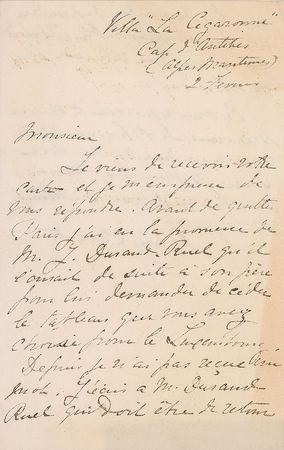 Villa "La Cigaronne"
Cap d'Antibes
(Alpes Maritimes)
2 Février
Monsieur
Je viens de recevoir votre
carte et je m'empresse de
vous répondre. Avant de quitter
Paris j'ai eu la promesse de
M. J. Durand Ruel qu'il
écrirait de suite à son père
pour lui demander de céder
le tableau que vous avez
choisi pour le Luxembourg.
Depuis je n'ai pas reçu
mot. J'écris à M. Durand
Ruel qui doit être de retour